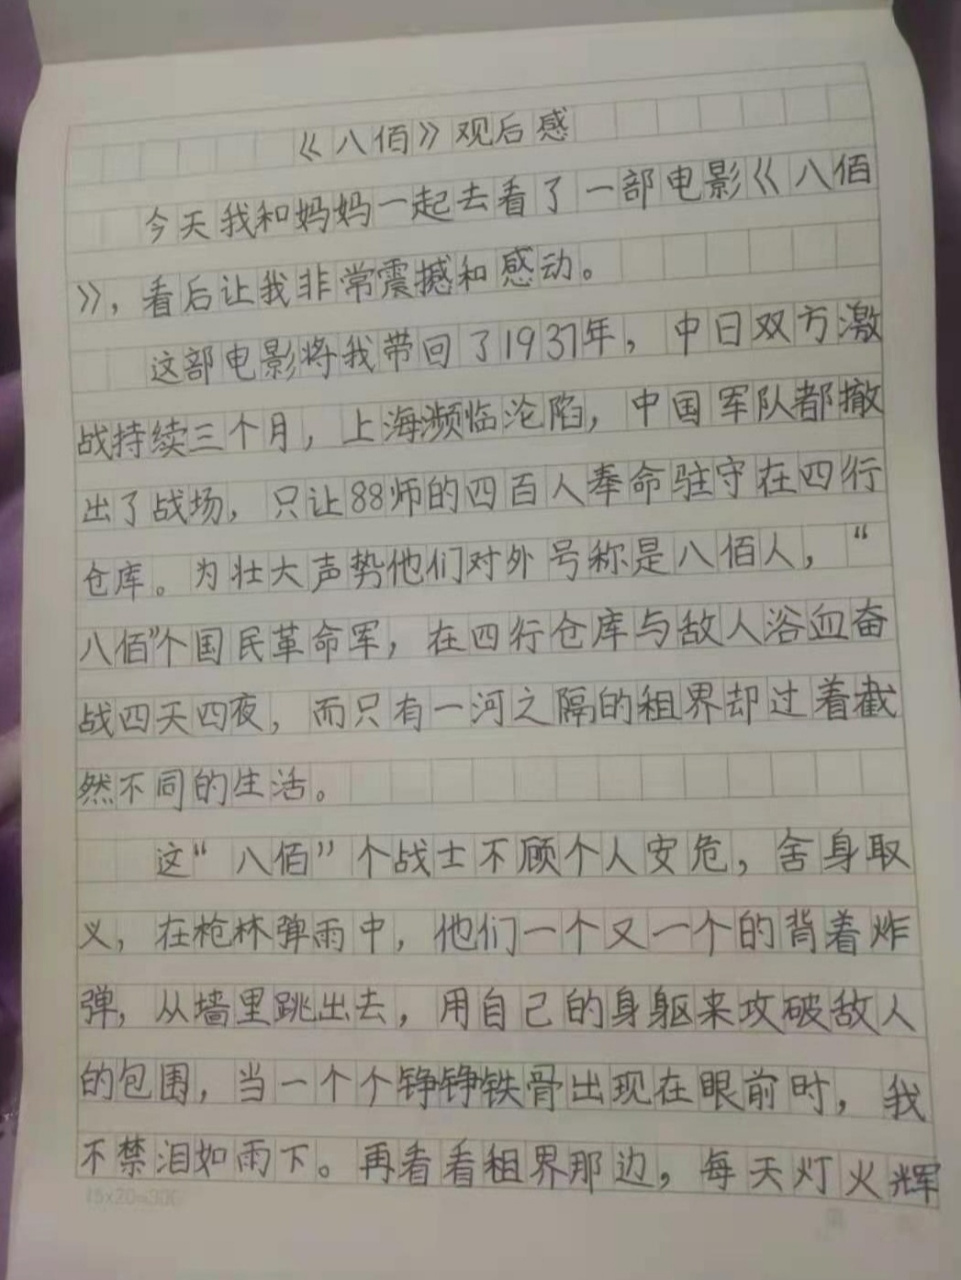 《八佰》观后感
今天我和妈妈一起去看了一部电影《八佰
》，看后让我非常震撼和感动。
这部电影将我带回了1937年，中日双方激
战持续三个月，上海濒临沦陷，中国军队都撤
出了战场，只让88师的四百人奉命驻守在四行
仓库。为壮大声势他们对外号称是八佰人，“
八佰”个国民革命军，在四行仓库与敌人浴血奋
战四天四夜，而只有一河之隔的租界却过着截
然不同的生活。
这“八佰”个战士不顾个人安危，舍身取
义，在枪林弹雨中，他们一个又一个的背着炸
弹，从墙里跳出去，用自己的身躯来攻破敌人
的包围，当一个个铮铮铁骨出现在眼前时，我
不禁泪如雨下。再看看租界那边，每天灯火辉
15x20=300